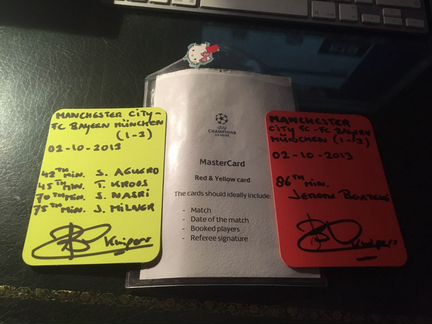 MANCHESTER CITY-
FC BAYERN MÜNCHEN
(1-3)
02-10-2013
42TH MIN. S. AGUERO
45TH MIN. T. KROOS
70TH MIN. S. NASRI
75TH MIN. J. MILNER
Kuipers
UEFA
CHAMPIONS
LEAGUE
MasterCard
Red & Yellow card
The cards should ideally include:
- Match
- Date of the match
- Booked players
- Referee signature
MANCHESTER
CITY FC - FC BAYERN
MÜNCHEN (1-3)
02-10-2013
86TH MIN.
JEROME BOATENG
Kuipers